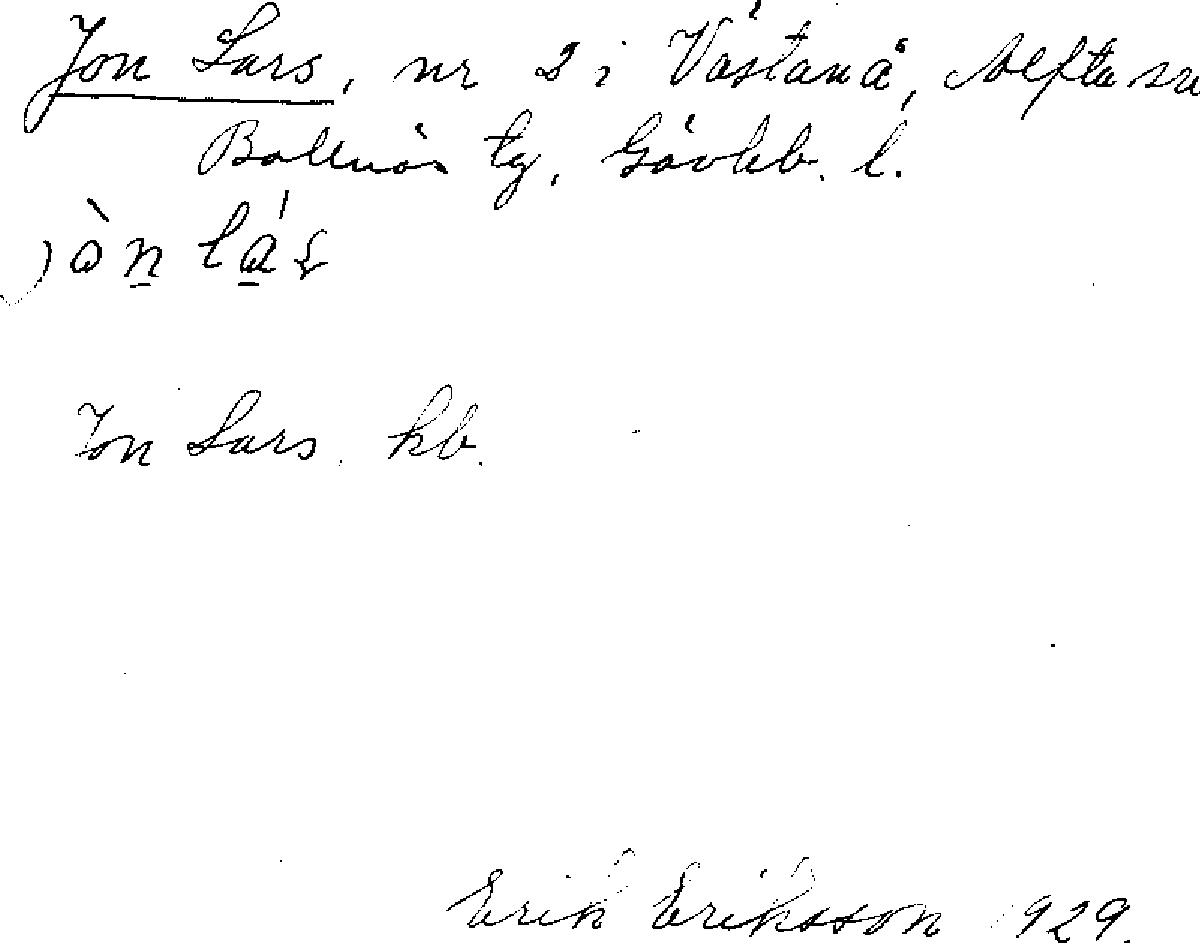 Jon Lars, nr 2 i Västanå, Alfta sn
Bollnäs tg, Gävleb. l.
jòn lás
Jon Lars. kb.
Erik Eriksson 1929.